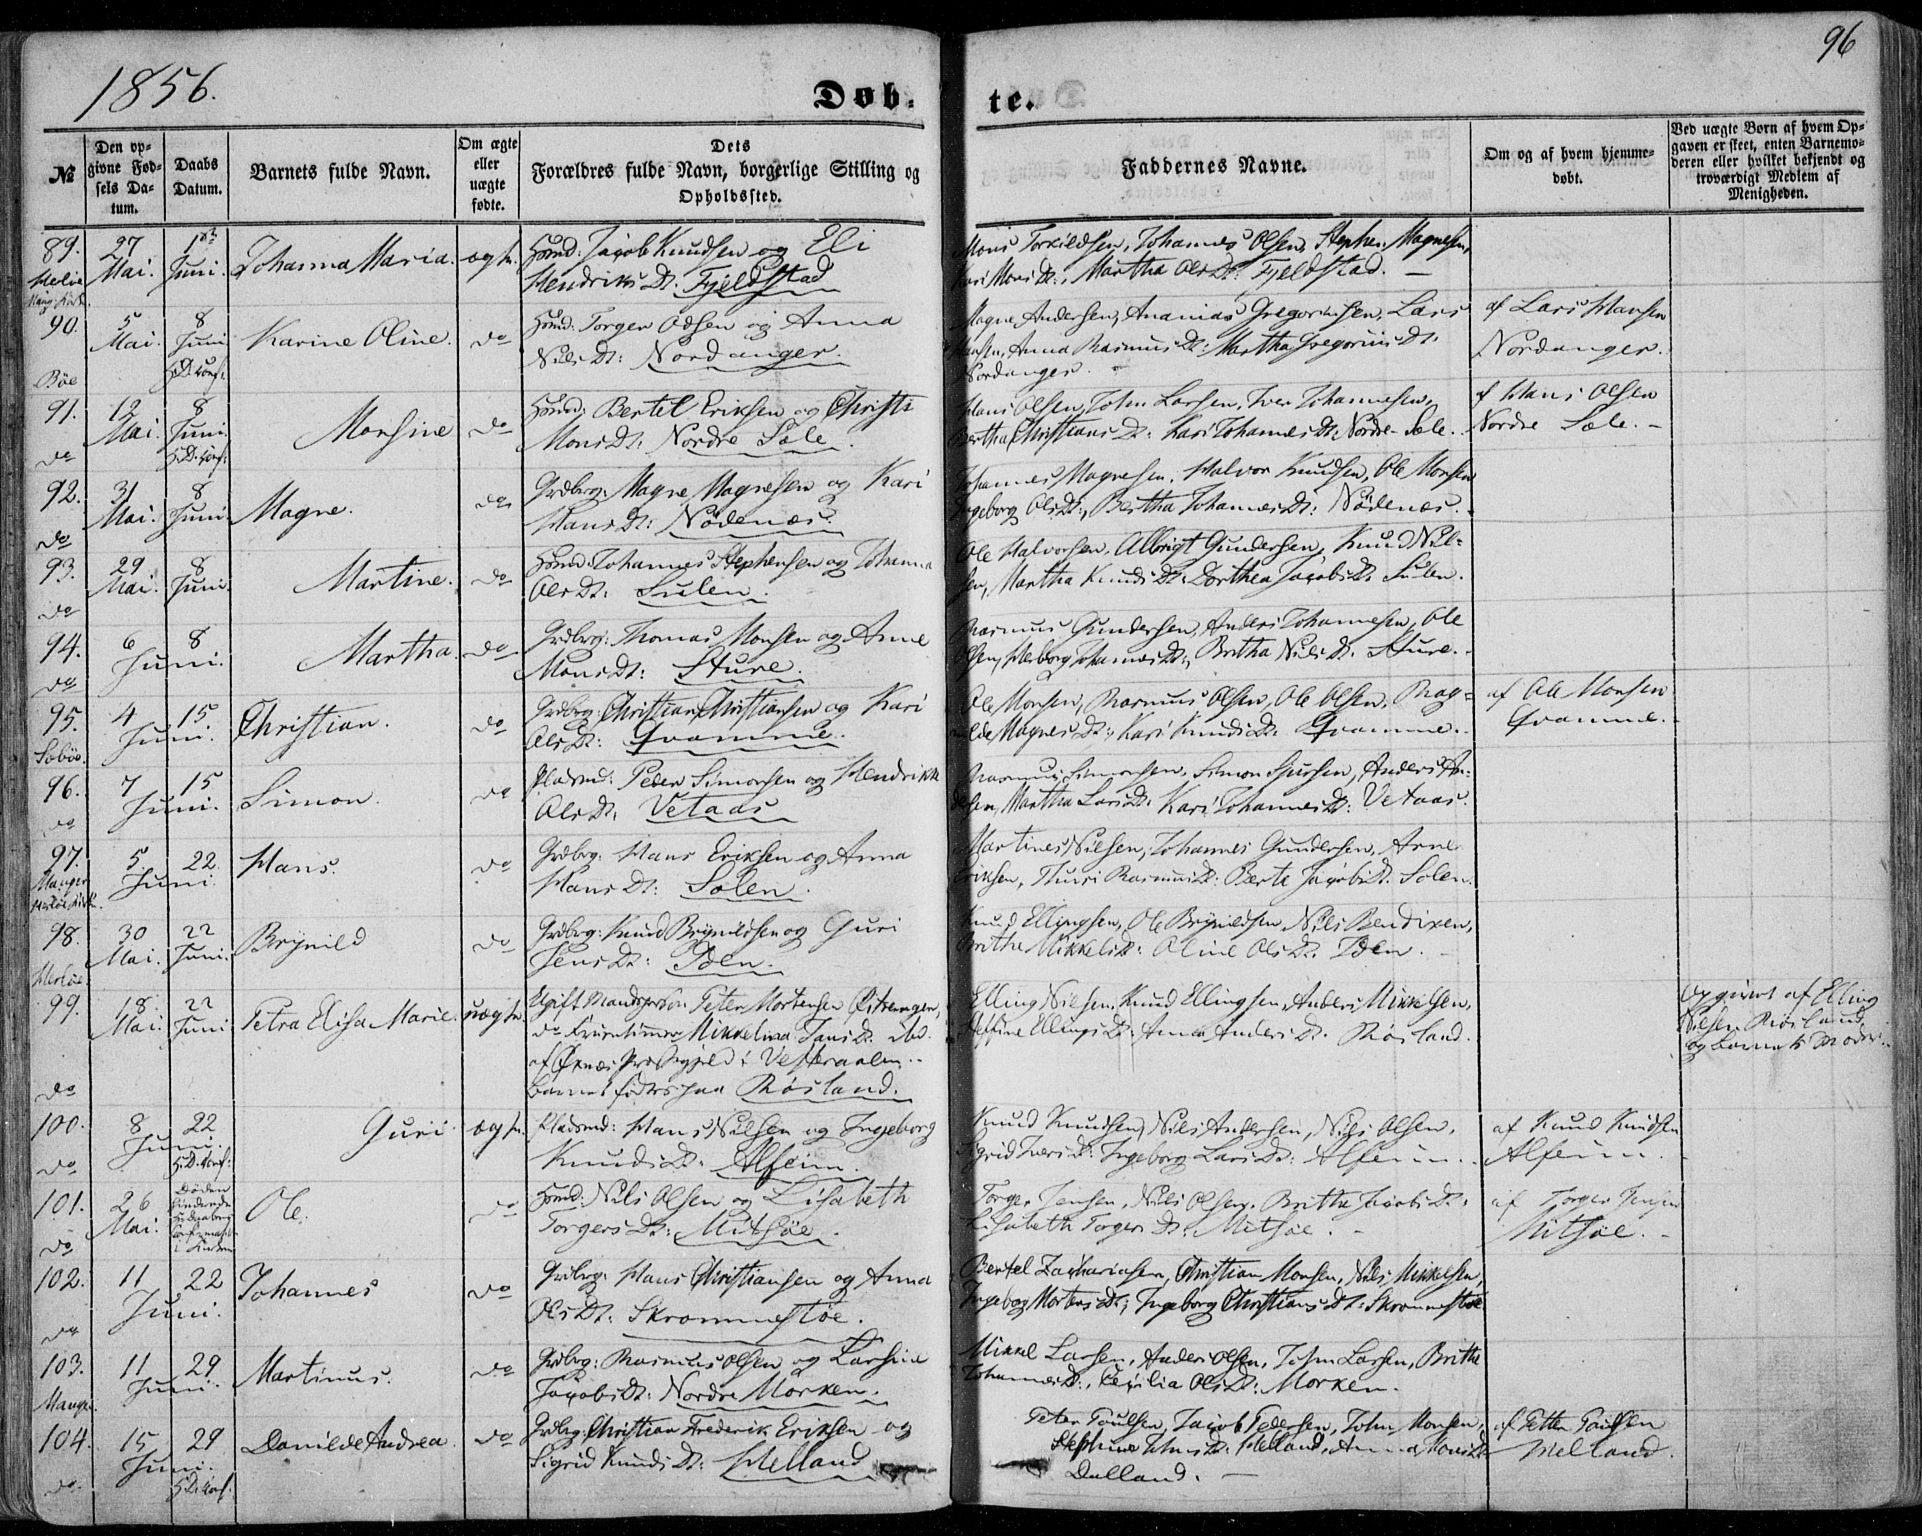 1856.
Døb-
te.
96
№
Den op-
givne Fød-
sels Da-
tum.
Daabs
Datum.
Barnets fulde Navn.
Om ægte
eller
uægte
fødte.
Dets
Forældres fulde Navn, borgerlige Stilling og
Opholdssted.
Faddernes Navne.
Om og af hvem hjemme-
døbt.
Ved uægte Børn af hvem Op-
gaven er skeet, enten Barnemo-
deren eller hvilket bekjendt og
troværdigt Medlem af
Menigheden.
89. 27 Mai. 1 Juni. Johanna Maria. ægte.
Jacob Knudsen og Eli
Hendriks Dt. Fjeldstad
Mons Torkildsen, Johannes Olsen, Stephen Magnesen,
Kari Mons Dt., Martha Ols Dt. Fjeldstad.
90. 5 Mai. 8 Juni Karine Oline. do
Bøe
Torger Olsen og Anna
Nils Dt: Nordanger.
Magne Andersen, Ananias Gregoriusen, Lars
Hansen, Anna Rasmus Dt: Martha Gregorius Dt.
Nordanger.
af Lars Hansen
Nordanger.
91. 12 Mai. 8 Juni. Monsine do
do
Bertel Eriksen og Christi
Mons Dt: Nordre Sæle.
Hans Olsen, John Larsen, Iver Johannesen,
Bertha Christians Dt: Kari Johannes Dt: Nordre Sæle.
af Hans Olsen
Nordre Sæle.
92. 31 Mai. 8 Juni. Magne. do
do
Grdbrg: Magne Magnesen og Kari
Hans Dt: Nødenæs.
Johannes Magnesen, Halvor Knudsen, Ole Monsen
Ingeborg Ols Dt., Bertha Johannes Dt: Nødenæs.
93. 29 Mai. 8 Juni. Martine. do
do
Johannes Stephensen og Johanna
Ols Dt: Sulen.
Ole Halvorsen, Albrigt Gundersen, Knud Nil-
sen, Martha Knuds Dt: Dorthea Jacobs Dt. Sulen.
94. 6 8 Juni. Martha. do
do
Grdbrg: Thomas Monsen og Anne
Mons Dt: Sture.
Rasmus Gundersen, Anders Johannesen, Ole
Olsen, Herborg Johannes Dt., Britha Nils Dt. Sture.
95. 4 15 Juni. Christian. do
Sæbøe.
Grdbrg: Christian Christiansen og Kari
Ols Dt: Qvamme.
Ole Monsen, Rasmus Olsen, Ole Olsen, Rag-
nilde Magnes Dt., Kari Knuds Dt. Qvamme.
af Ole Monsen
Qvamme.
96. 7 15 Juni. Simon. do
do
Pladsmd: Peder Simonsen og Hendrikke
Ols Dt. Vetaas
Rasmus Simonsen, Simon Sjursen, Anders An-
dersen, Martha Lars Dt. Kari Johannes Dt: Vetaas.
97. 5. 22. Juni. Hans. do
Manger
Grdbrg: Hans Eriksen og Anna
Hans Dt: Solen.
Martines Nilsen, Johannes Gundersen, Arne
Eriksen, Thuri Rasmus Dt: Berte Jacobs Dt. Solen.
98. 30 Mai. 22 Juni. Brynild do
Herløe.
Grdbrg: Knud Brynildsen og Guri
Jens Dt: Iden.
Knud Ellingsen, Ole Brynildsen, Nils Bendixen,
Brithe Mikkels Dt: Oline Ols Dt. Iden.
99. 18 Mai. 22 Juni Petra Elisa Marie. uægte.
do
Ugift Mandsperson Peter Mortensen
do Fruentimmer Mikkelina Jans Dt. ibd.
af Øxnæs Præstegjeld i Vesteraalen.
Barnet fødtes paa Røsland.
Elling Nilsen, Knud Ellingsen, Anders Mikkelsen,
Ellings Dt. Anna Anders Dt. Røsland.
Opgivet af Elling
Nilsen Røsland,
og Barnets Moder.
100. 8 22 Juni. Guri ægte.
do
Pladsmd: Hans Nilsen og Ingeborg
Knuds Dt. Alfeim.
Knud Knudsen, Nils Andersen, Nils Olsen,
Sigrid Ivers Dt. Ingeborg Lars Dt: Alfeim.
af Knud Knudsen
Alfeim.
101. 26 Mai. Døden
hindrede
Ole. do
do
Nils Olsen og Lisabeth
Torgers Dt: Mitsøe.
Torger Jensen, Nils Olsen, Britha Jacobs Dt.
Lisabeth Torgers Dt: Mitsøe.
af Torger Jensen
Mitsøe.
102. 11 22 Juni. Johannes do
do
Grdbrg: Hans Christiansen og Anna
Ols Dt: Skrommestøe.
Bertel Zachariasen, Christian Monsen, Nils Mikkelsen,
Ingeborg Mortens Dt., Ingeborg Christians Dt: Skrommestøe
103. 11 29 Juni. Martinus. do
Manger.
Grdbrg: Rasmus Olsen og Larsine
Jacobs Dt: Nordre Morken.
Mikkel Larsen, Anders Olsen, John Larsen, Brithe
Johannes Dt., Cecilia Ols Dt: Morken.
104. 15 29 Juni. Danilde Andrea. do
do.
Grdbrg: Christian Frederik Eriksen og
Sigrid Knuds Dt: Helland
Peter Poulsen, Jacob Pedersen, John Monsen,
Stephine Johns Dt. Helland, Anna Mons Dt.
Dalland.
af Petter Poulsen
Helland.